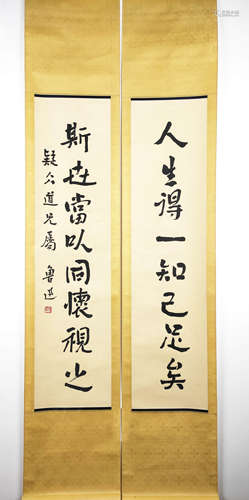 人生得一知己足矣
斯世當以同懷視之
疑仌道兄屬
魯迅